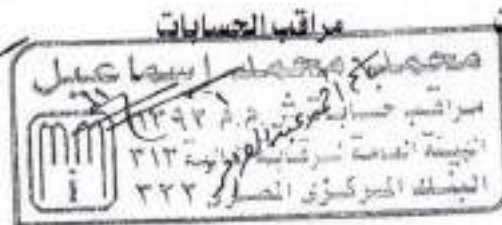 مراقب الحسابات
محمد محمد اسماعيل
مراقب حسابات س.م.م ٩٣٩٣
الهيئة العامة للرقابة المالية ٣١٣
البنك المركزى المصرى ٣٢٣